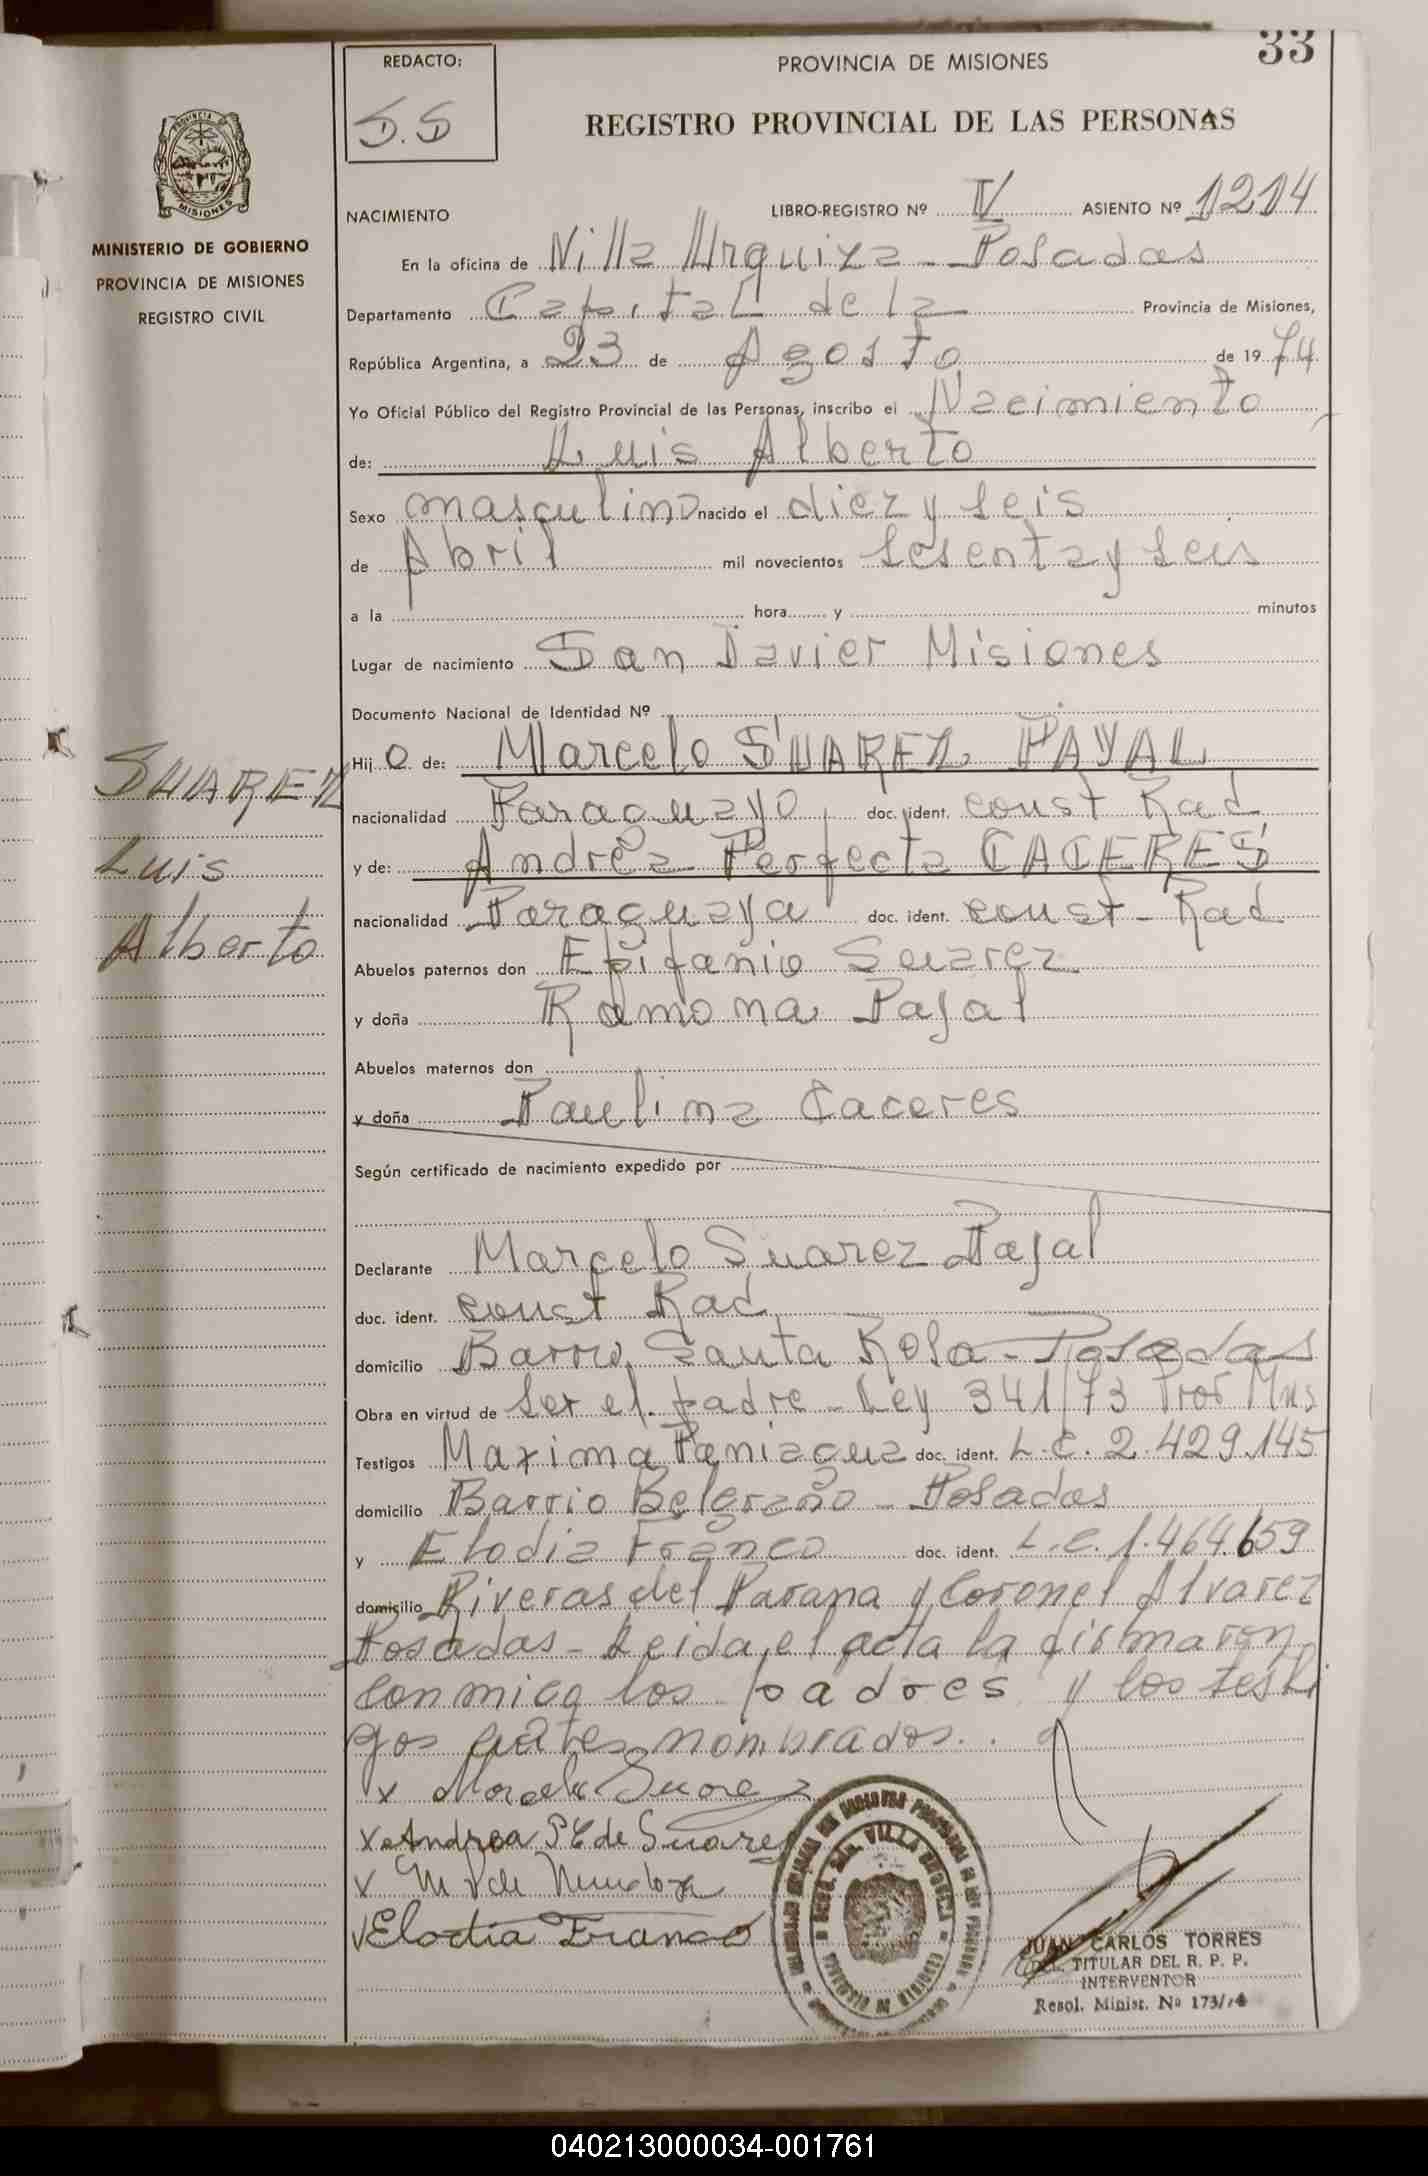 33
REDACTO:
S.S
PROVINCIA DE MISIONES
REGISTRO PROVINCIAL DE LAS PERSONAS
PROVINCIA DE
MISIONES
MINISTERIO DE GOBIERNO
PROVINCIA DE MISIONES
REGISTRO CIVIL
NACIMIENTO
LIBRO-REGISTRO Nº IV ASIENTO Nº 1214
En la oficina de Villa Urquiza - Posadas
Departamento Capital de la Provincia de Misiones,
República Argentina, a 23 de Agosto de 1974
Yo Oficial Público del Registro Provincial de las Personas, inscribo el Nacimiento
de: Luis Alberto
Sexo masculino nacido el diez y seis
de Abril mil novecientos sesenta y seis
a la hora y minutos
Lugar de nacimiento San Javier Misiones
Documento Nacional de Identidad Nº
Hij o de: Marcelo SUAREZ PAYAL
nacionalidad Paraguayo doc. ident. const Rad
y de: Andrea Perfecta CACERES
nacionalidad Paraguaya doc. ident. const - Rad
Abuelos paternos don Epifanio Suarez
y doña Ramona Pajal
Abuelos maternos don
y doña Paulina Caceres
Según certificado de nacimiento expedido por
Declarante Marcelo Suarez Pajal
doc. ident. const Rad
domicilio Barrio Santa Rosa - Posadas
Obra en virtud de ser el padre - Ley 341/73 Prov Mns
Testigos Maxima Paniagua doc. ident. L.C. 2.429.145
domicilio Barrio Belgrano - Posadas
y Elodia Franco doc. ident. L.C. 1.464.659
domicilio Riveras del Parana y Coronel Alvarez
Posadas - Leida el acta la firmaron
conmigo los padres y los testi
gos antes nombrados..
x Marcelo Suarez
x Andrea P C de Suarez
x M P de Mendoza
x Elodia Franco
SUAREZ
Luis
Alberto
VILLA URQUIZA
JUAN CARLOS TORRES
DEL. TITULAR DEL R. P. P.
INTERVENTOR
Resol. Minist. Nº 173/74
040213000034-001761